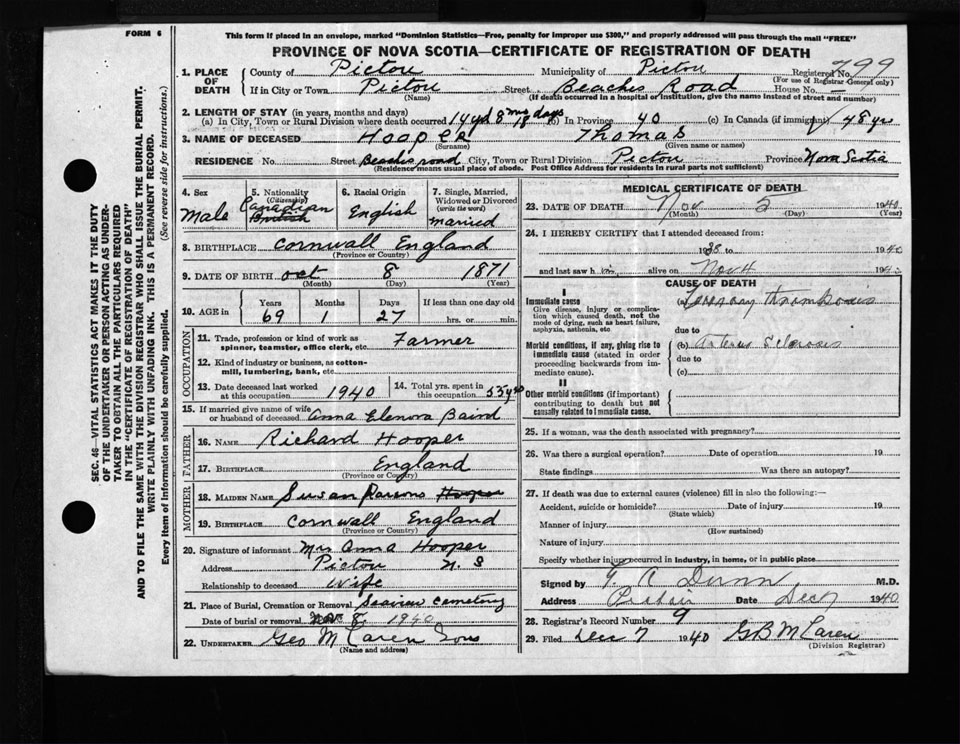 FORM 6
This form if placed in an envelope, marked "Dominion Statistics—Free, penalty for improper use $300," and properly addressed will pass through the mail "FREE"
PROVINCE OF NOVA SCOTIA—CERTIFICATE OF REGISTRATION OF DEATH
1. PLACE OF DEATH County of Pictou Municipality of Pictou Registered No. 799
(For use of Registrar-General only)
If in City or Town Pictou Street Beaches Road House No. —
(If death occurred in a hospital or institution, give the name instead of street and number)
2. LENGTH OF STAY (in years, months and days)
(a) In City, Town or Rural Division where death occurred 14 yrs 8 mos 18 days (b) In Province 40 (c) In Canada (if immigrant) 48 yrs
3. NAME OF DECEASED Hooper Thomas
(Surname) (Given name or names)
RESIDENCE No. Street Beaches road City, Town or Rural Division Pictou Province Nova Scotia
(Residence means usual place of abode. Post Office Address for residents in rural parts not sufficient)
4. Sex Male
5. Nationality (Citizenship) Canadian British
6. Racial Origin English
7. Single, Married, Widowed or Divorced (write the word) married
8. BIRTHPLACE Cornwall England
(Province or Country)
9. DATE OF BIRTH Oct 8 1871
(Month) (Day) (Year)
10. AGE in Years Months Days If less than one day old
69 1 27 hrs. or min.
OCCUPATION
11. Trade, profession or kind of work as spinner, teamster, office clerk, etc. Farmer
12. Kind of industry or business, as cotton-mill, lumbering, bank, etc.
13. Date deceased last worked at this occupation 1940
14. Total yrs. spent in this occupation 55 yrs
15. If married give name of wife or husband of deceased Anna Elenora Baird
FATHER
16. NAME Richard Hooper
17. BIRTHPLACE England
(Province or Country)
MOTHER
18. MAIDEN NAME Susan Parsons Hooper
19. BIRTHPLACE Cornwall England
(Province or Country)
20. Signature of informant Mrs Anna Hooper
Address Pictou N. S
Relationship to deceased Wife
21. Place of Burial, Cremation or Removal Seaview Cemetery
Date of burial or removal 8 1940
22. UNDERTAKER Geo McLaren Sons
(Name and address)
MEDICAL CERTIFICATE OF DEATH
23. DATE OF DEATH Nov 5 1940
(Month) (Day) (Year)
24. I HEREBY CERTIFY that I attended deceased from:
1938 to 1940
and last saw him alive on Nov 4 1940
CAUSE OF DEATH
I
Immediate cause
Give disease, injury or complication which caused death, not the mode of dying, such as heart failure, asphyxia, asthenia, etc
(a) Coronary Thrombosis
due to
Morbid conditions, if any, giving rise to immediate cause (stated in order proceeding backwards from immediate cause).
(b) Arterio Sclerosis
due to
(c)
II
Other morbid conditions (if important) contributing to death but not causally related to immediate cause.
25. If a woman, was the death associated with pregnancy?
26. Was there a surgical operation? Date of operation 19
State findings Was there an autopsy?
27. If death was due to external causes (violence) fill in also the following:—
Accident, suicide or homicide? Date of injury 19
(State which)
Manner of injury
(How sustained)
Nature of injury
Specify whether injury occurred in industry, in home, or in public place
Signed by G A Dunn M.D.
Address Pictou Date Dec 7 1940
28. Registrar's Record Number 9
29. Filed Dec 7 1940 G B McLaren
(Division Registrar)
SEC. 46—VITAL STATISTICS ACT MAKES IT THE DUTY
OF THE UNDERTAKER OR PERSON ACTING AS UNDER-
TAKER TO OBTAIN ALL THE PARTICULARS REQUIRED
IN THE "CERTIFICATE OF REGISTRATION OF DEATH"
AND TO FILE THE SAME WITH THE DIVISION REGISTRAR WHO SHALL ISSUE THE BURIAL PERMIT.
WRITE PLAINLY WITH UNFADING INK. THIS IS A PERMANENT RECORD.
Every item of information should be carefully supplied. (See reverse side for instructions.)